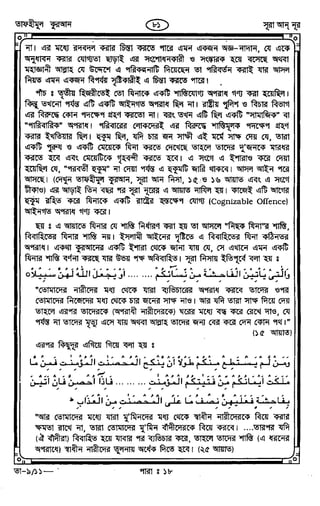 তাফহীমুল কুরআন ৮১ সূরা আন নূর
না। এর মধ্যে রদবদল করার চিন্তা করতে পারে এমন একজন অজ্ঞ-নাদান, যে একে
অনুধাবন করার যোগ্যতা ছাড়াই এর সংশোধনকারী ও সংস্কারক হয়ে বসেছে অথবা
মহাজ্ঞানী আল্লাহ যে উদ্দেশ্যে এ পরিকল্পনাটি দিয়েছেন তা পরিবর্তন করাই যার আসল
নিয়ত এমন একজন বিপর্যয় সৃষ্টিকারীই এ চিন্তা করতে পারে।
পাঁচ ঃ তৃতীয় হিজরীতেই তো যিনাকে একটি শাস্তিযোগ্য অপরাধ গণ্য করা হয়েছিল।
কিন্তু তখনো পর্যন্ত এটি একটি আইনগত অপরাধ ছিল না। রাষ্ট্রীয় পুলিশ ও বিচার বিভাগ
এর বিরুদ্ধে কোন পদক্ষেপ গ্রহণ করতো না। বরং তখন এটি ছিল একটি "সামাজিক" বা
"পারিবারিক" অপরাধ। পরিবারের লোকদেরই এর বিরুদ্ধে শাস্তিমূলক পদক্ষেপ গ্রহণ
করার ইখতিয়ার ছিল। হুকুম ছিল, যদি চার জন সাক্ষী এই মর্মে সাক্ষ দেয় যে, তারা
একটি পুরুষ ও একটি মেয়েকে যিনা করতে দেখেছে তাহলে তাদের দু'জনকে মারধর
করতে হবে এবং মেয়েটিকে গৃহবন্দী করতে হবে। এ সংগে এ ইশারাও করে দেয়া
হয়েছিল যে, "পরবর্তী হুকুম" না দেয়া পর্যন্ত এ হুকুমটি জারি থাকবে। আসল আইন পরে
আসছে। (দেখুন তাফহীমুল কুরআন, সূরা আন নিসা, ১৫ ও ১৬ আয়াত এবং এ সংগে
টীকাও) এর আড়াই তিন বছর পর সূরা নূরের এ আয়াত নাযিল হয়। কাজেই এটি আগের
হুকুম রহিত করে যিনাকে একটি রাষ্ট্রের হস্তক্ষেপ যোগ্য (Cognizable Offence)
আইনগত অপরাধ গণ্য করে।
ছয় ঃ এ আয়াতে যিনার যে শাস্তি নির্ধারণ করা হয় তা আসলে "নিছক যিনা"র শাস্তি,
বিবাহিতের যিনার শাস্তি নয়। ইসলামী আইনের দৃষ্টিতে এ বিবাহিতের যিনা কঠিনতর
অপরাধ। একথা কুরআনের একটি ইশারা থেকে জানা যায় যে, সে এখানে এমন একটি
যিনার শাস্তি বর্ণনা করছে যার উভয় পক্ষ অবিবাহিত। সূরা নিসায় ইতিপূর্বে বলা হয় ঃ
وَالّٰتِيْ يَأْتِيْنَ الْفَاحِشَةَ مِنْ نِّسَائِكُمْ ... ... اَوْ يَجْعَلَ اللّٰهُ لَهُنَّ سَبِيْلًا ০
"তোমাদের নারীদের মধ্য থেকে যারা ব্যভিচারের অপরাধ করবে তাদের ওপর
তোমাদের নিজেদের মধ্য থেকে চার জনের সাক্ষ নাও। আর যদি তারা সাক্ষ দিয়ে দেয়
তাহলে এরপর তাদেরকে (অপরাধী নারীদেরকে) ঘরের মধ্যে বন্ধ করে রেখে দাও, যে
পর্যন্ত না তাদের মৃত্যু এসে যায় অথবা আল্লাহ তাদের জন্য বের করে দেন কোন পথ।"
(১৫ আয়াত)
এরপর কিছুদূর এগিয়ে গিয়ে বলা হয় ঃ
وَمَنْ لَّمْ يَسْتَطِعْ مِنْكُمْ طَوْلًا اَنْ يَّنْكِحَ الْمُحْصَنٰتِ الْمُؤْمِنٰتِ فَمِنْ مَّا
مَلَكَتْ اَيْمَانُكُمْ مِّنْ فَتَيٰتِكُمُ الْمُؤْمِنٰتِ ... ... ... فَاِذَا اُحْصِنَّ فَاِنْ اَتَيْنَ
بِفَاحِشَةٍ فَعَلَيْهِنَّ نِصْفُ مَا عَلَى الْمُحْصَنٰتِ مِنَ الْعَذَابِ ط
"আর তোমাদের মধ্যে যারা মু'মিনদের মধ্য থেকে স্বাধীন নারীদেরকে বিয়ে করার
ক্ষমতা রাখে না, তারা তোমাদের মু'মিন বাঁদীদেরকে বিয়ে করবে। ....তারপর যদি
(ঐ বাঁদীরা) বিবাহিত হয়ে যাবার পর ব্যভিচার করে, তাহলে তাদের শাস্তি (এ ধরনের
অপরাধে) স্বাধীন নারীদের তুলনায় অর্ধেক দিতে হবে। (২৫ আয়াত)
তা-৯/১১— পারা ঃ ১৮